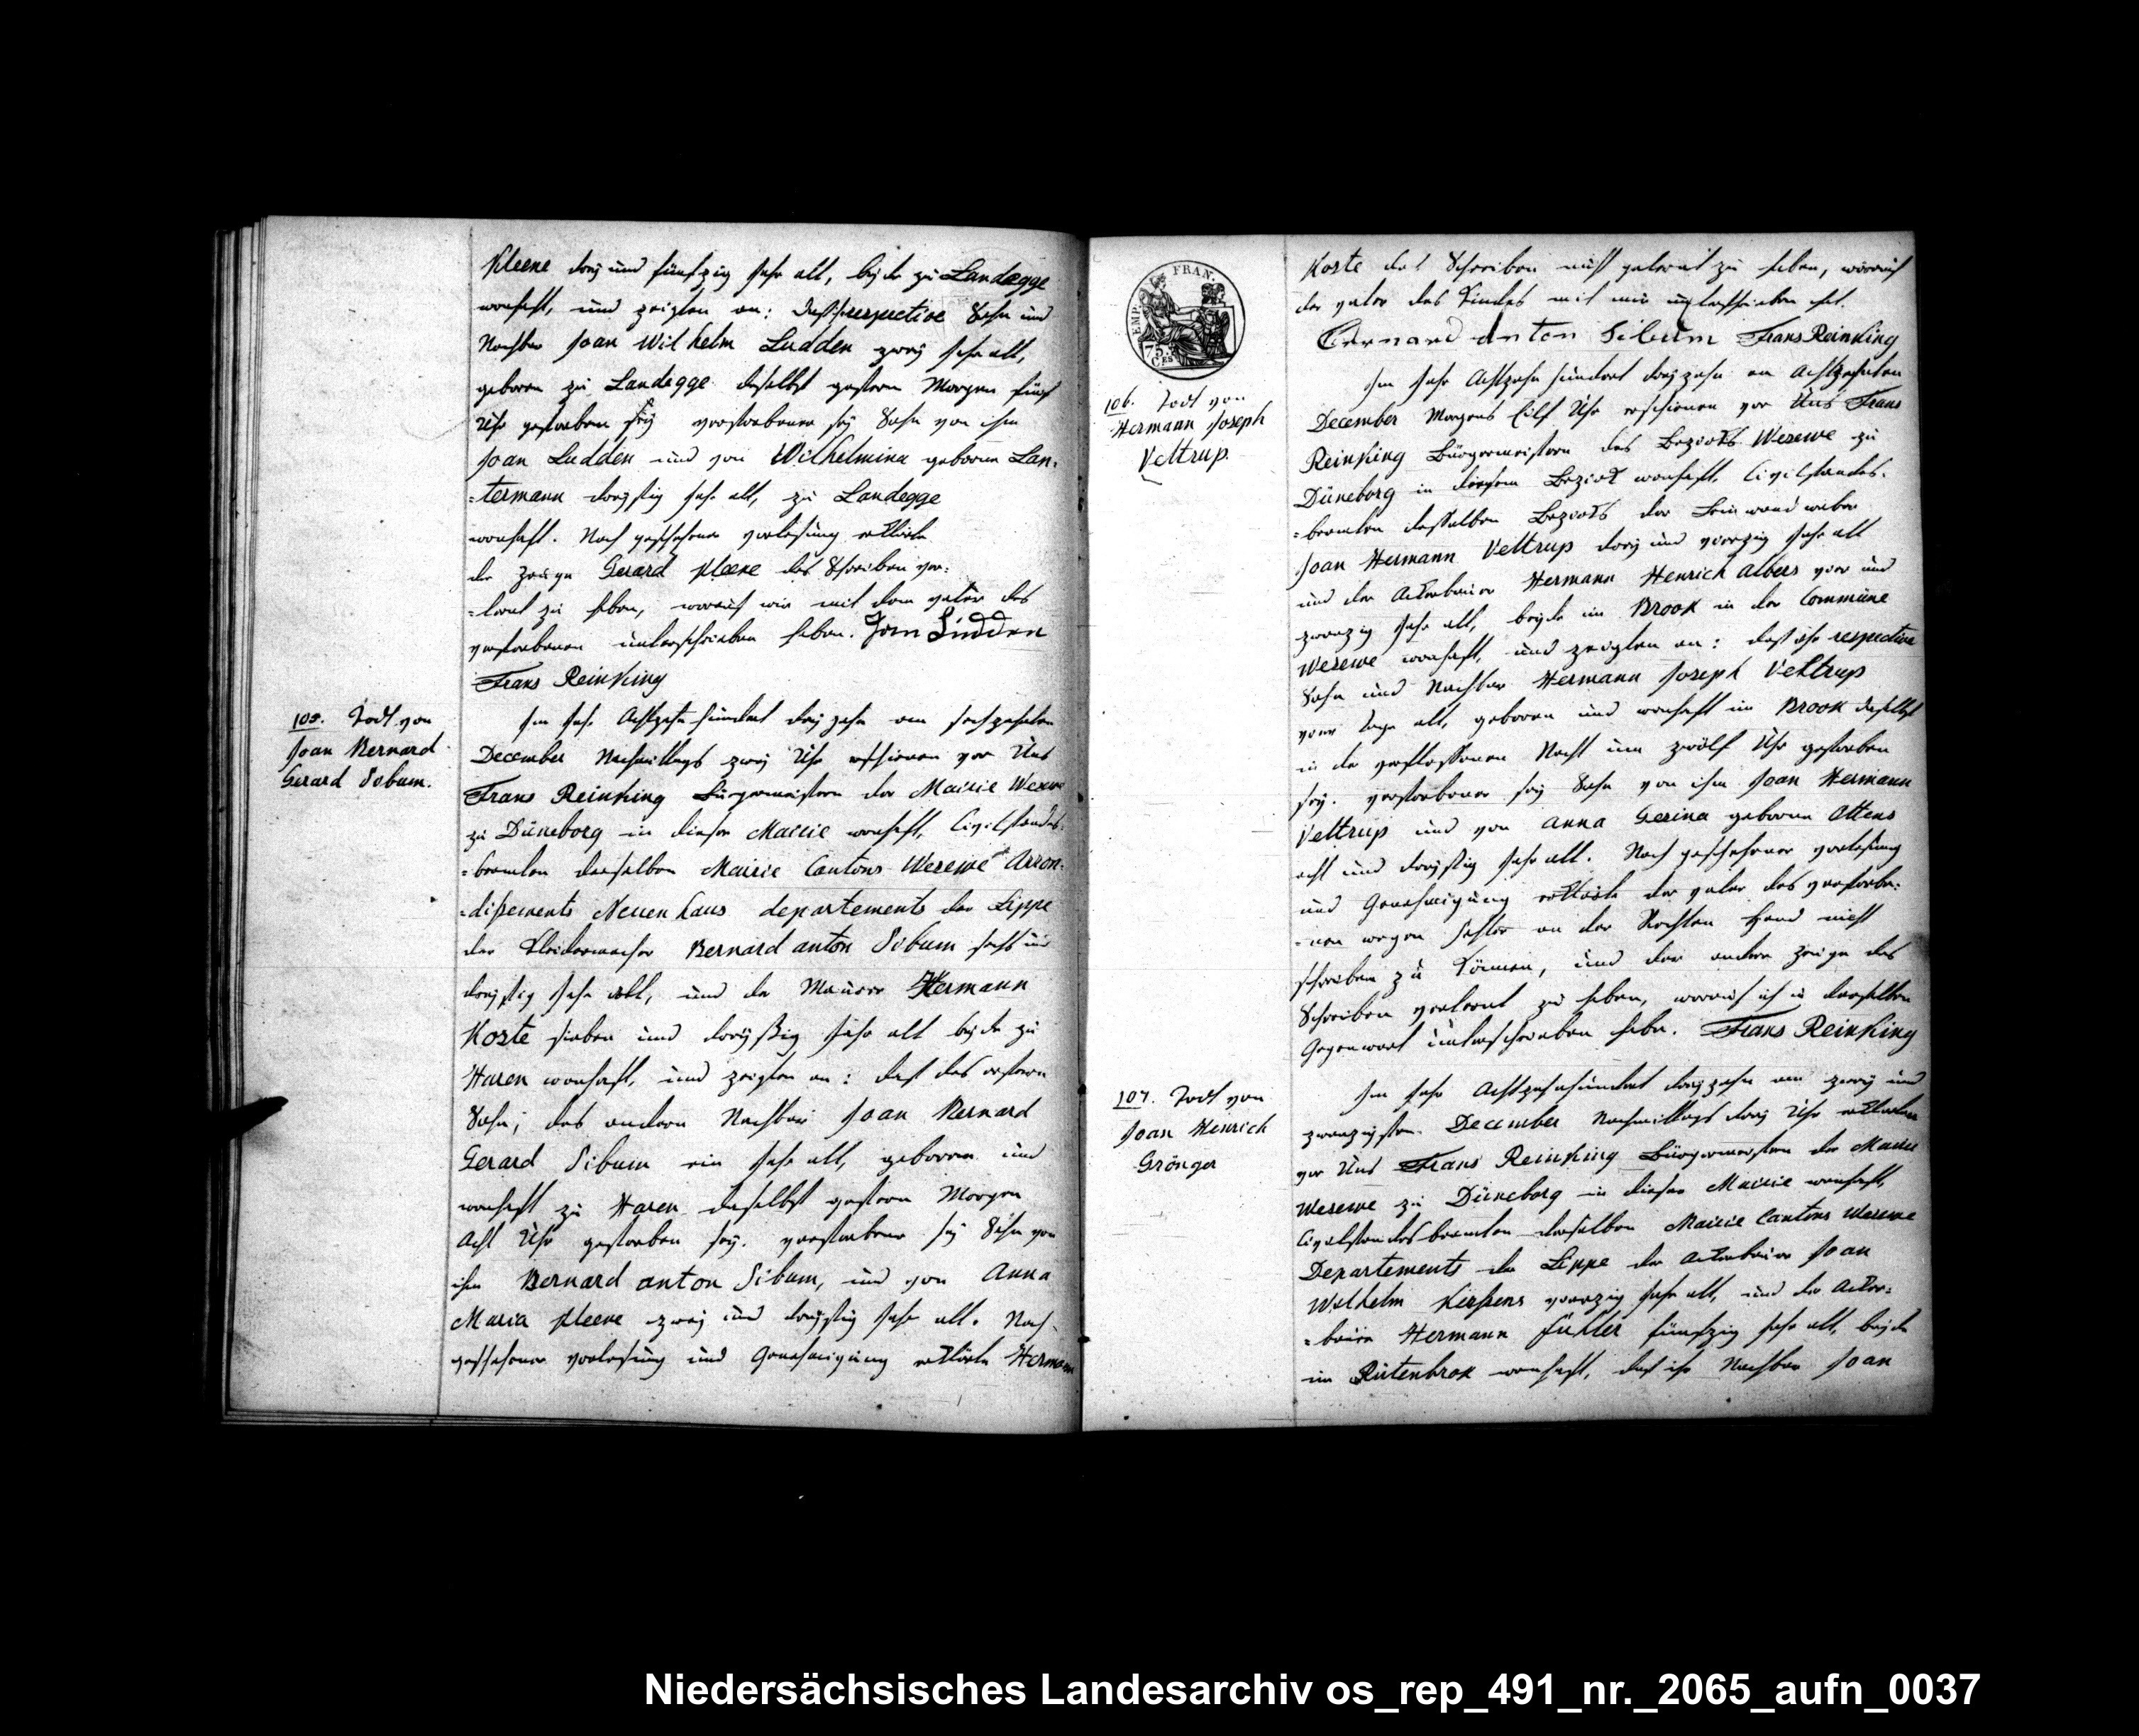 Kleene dreÿ und fünfzig Jahr alt, beÿde zu Landegge
wonhaft, und zeigten an: daß ihr respective Sohn und
Nachbar Joan Wilhelm Ludden zweÿ Jahr alt,
geboren zu Landegge daselbst gestern Morgen fünf
Uhr gestorben seÿ verstorbener seÿ Sohn von ihm
Joan Ludden und von Wilhelmina geboren Lan-
=termann dreÿssig Jahr alt, zu Landegge
wonhaft. Nach geschehener vorlesung erklärte
der Zeuge Gerard Kleene das Schreiben ver=
=lernt zu haben, worauf wir mit dem vater des
verstorbenen unterschrieben haben. Joan Lüdden
Frans Reinking
105. Todt von
Joan Bernard
Gerard Sibum.
Im Jahr Achtzehn hundert dreÿzehn am sechzehnten
December Nachmittags zweÿ Uhr erschienen vor Uns
Frans Reinking Bürgermeistern der Mairie Wesuwe
zu Düneborg in dieser Mairie wonhaft, Civilstandes-
=beamten derselben Mairie Cantons Wesuwe Arron-
=dißements Neuenhaus departements der Lippe
der Kleidermacher Bernard anton Sibum sechs und
dreÿssig Jahr alt, und der Maurer Hermann
Koste sieben und dreÿßig Jahr alt beÿde zu
Haren wonhaft, und zeigten an: daß des erstern
Sohn, des andern Nachbar Joan Bernard
Gerard Sibum ein Jahr alt, geboren und
wonhaft zu Haren daselbst gestern Morgen
Acht Uhr gestorben seÿ. verstorbener seÿ Sohn von
ihm Bernard anton Sibum, und von Anna
Maria Kleene zweÿ und dreÿssig Jahr alt. Nach
geschehener vorlesung und Genehmigung erklärte Hermann
EMP. FRAN.
75.
CES
Koste das Schreiben nicht gelernt zu haben, worauf
der vater des Kindes mit mir unterschrieben hat.
Bernard Anton Sibum Frans Reinking
106. Todt von
Hermann Joseph
Veltrup.
Im Jahr Achtzehn hundert dreÿzehn am Achtzehnten
December Morgens Eilf Uhr erschienen vor Uns Frans
Reinking Bürgermeistern des Bezirks Wesewe zu
Düneborg in diesem Bezirk wonhaft, Civilstandes-
=beamten desselben Bezirks der Leinwand weber
Joan Hermann Veltrup dreÿ und vierzig Jahr alt
und der Ackerbauer Hermann Henrich Albers vier und
zwanzig Jahr alt, beÿde im Brook in der Commüne
Wesewe wonhaft, und zeigten an: daß ihr respective
Sohn und Nachbar Hermann Joseph Veltrup
vier Tage alt, geboren und wonhaft im Brook daselbst
in der verflossenen Nacht um zwölf Uhr gestorben
seÿ. verstorbener seÿ Sohn von ihm Joan Hermann
Veltrup und von Anna Gesina geboren Ottens
acht und dreÿssig Jahr alt. Nach geschehener vorlesung
und Genehmigung erklärte der vater des verstorbe-
=nen wegen Fehler an der Rechten Hand nicht
schreiben zu können, und der andere Zeuge das
Schreiben verlernt zu haben, worauf ich in derselben
Gegenwart unterschrieben habe. Frans Reinking
107. Todt von
Joan Henrich
Grönger
Im Jahr Achtzehnhundert dreÿzehn am zweÿ und
zwanzigsten December Nachmittags dreÿ Uhr erklärten
vor Uns Frans Reinking Bürgermeistern der Mairie
Wesewe zu Düneborg in dieser Mairie wonhaft,
Civilstandesbeamten derselben Mairie Cantons Wesewe
Departements der Lippe der Ackerbauer Joan
Wilhelm Kerßens vierzig Jahr alt, und der Acker-
=bauer Hermann Fühler fünfzig Jahr alt, beÿde
im Rütenbrok wonhaft, daß ihr Nachbar Joan
Niedersächsisches Landesarchiv os_rep_491_nr._2065_aufn_0037